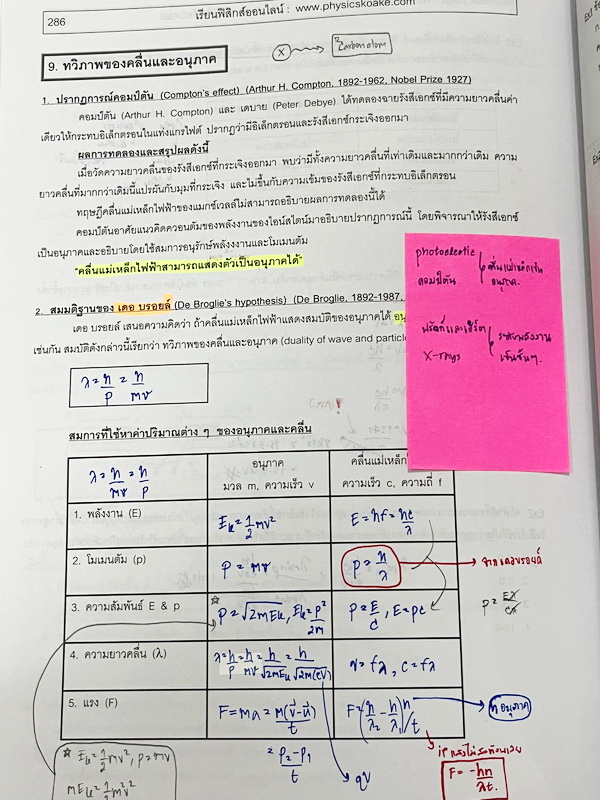 286
เรียนฟิสิกส์ออนไลน์ : www.physicskoake.com
9. ทวิภาพของคลื่นและอนุภาค
X
Carbon atom
1. ปรากฏการณ์คอมป์ตัน (Compton's effect) (Arthur H. Compton, 1892-1962, Nobel Prize 1927)
คอมป์ตัน (Arthur H. Compton) และ เดบาย (Peter Debye) ได้ทดลองฉายรังสีเอกซ์ที่มีความยาวคลื่นค่า
เดียวให้กระทบอิเล็กตรอนในแท่งแกรไฟต์ ปรากฏว่ามีอิเล็กตรอนและรังสีเอกซ์กระเจิงออกมา
ผลการทดลองและสรุปผลดังนี้
เมื่อวัดความยาวคลื่นของรังสีเอกซ์ที่กระเจิงออกมา พบว่ามีทั้งความยาวคลื่นที่เท่าเดิมและมากกว่าเดิม ความ
ยาวคลื่นที่มากกว่าเดิมนี้แปรผันกับมุมที่กระเจิง และไม่ขึ้นกับความเข้มของรังสีเอกซ์ที่กระทบอิเล็กตรอน
ทฤษฎีคลื่นแม่เหล็กไฟฟ้าของแมกซ์เวลล์ไม่สามารถอธิบายผลการทดลองนี้ได้
คอมป์ตันอาศัยแนวคิดควอนตัมของพลังงานของไอน์สไตน์มาอธิบายปรากฏการณ์นี้ โดยพิจารณาให้รังสีเอกซ์
เป็นอนุภาคและอธิบายโดยใช้สมการอนุรักษ์พลังงานและโมเมนตัม
"คลื่นแม่เหล็กไฟฟ้าสามารถแสดงตัวเป็นอนุภาคได้"
photoelectic
คอมป์ตัน
คลื่นแม่เหล็กเป็น
อนุภาค.
X-rays
ระดับพลังงาน
เป็นชั้นๆ.
2. สมมติฐานของ เดอ บรอยล์ (De Broglie's hypothesis) (De Broglie, 1892-1987,
เดอ บรอยล์ เสนอความคิดว่า ถ้าคลื่นแม่เหล็กไฟฟ้าแสดงสมบัติของอนุภาคได้
เช่นกัน สมบัติดังกล่าวนี้เรียกว่า ทวิภาพของคลื่นและอนุภาค (duality of wave and particle
λ = h/p = h/mv
สมการที่ใช้หาค่าปริมาณต่าง ๆ ของอนุภาคและคลื่น
λ = h/mv = h/p
อนุภาค
มวล m, ความเร็ว v
คลื่นแม่เหล็ก
ความเร็ว c, ความถี่ f
1. พลังงาน (E)
Ek = 1/2 mv²
E = hf = hc/λ
2. โมเมนตัม (p)
P = mv
P = h/λ
จากเดอบรอยล์
3. ความสัมพันธ์ E & p
☆ P = √2mEk, Ek = P²/2m
P = E/c, E = pc
4. ความยาวคลื่น (λ)
λ = h/P = h/mv = h/√2mEk = h/√2m(eV)
v = fλ, c = fλ
qv
5. แรง (F)
F = ma = m(v-u)/t
= P2-P1/t
F = (h/λ2 - h/λ1)n/t
n อนุภาค
F = -hn/λt.
☆ Ek = 1/2 mv², p = mv
mEk = 1/2 m²v²